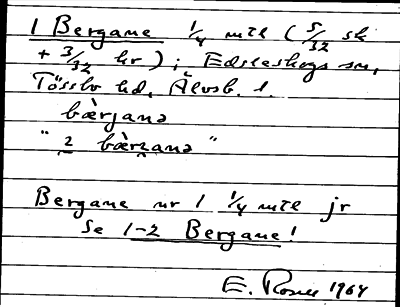 1 Bergane 1/4 mtl (5/32 sk
+ 3/32 kr); Edsleskogs sn,
Tössbo hd, Älvsb. l.
bὲrjanə
"2 bὲrjanə"
Bergane nr 1 1/4 mtl jr
Se 1-2 Bergane!
E. Rosell 1964